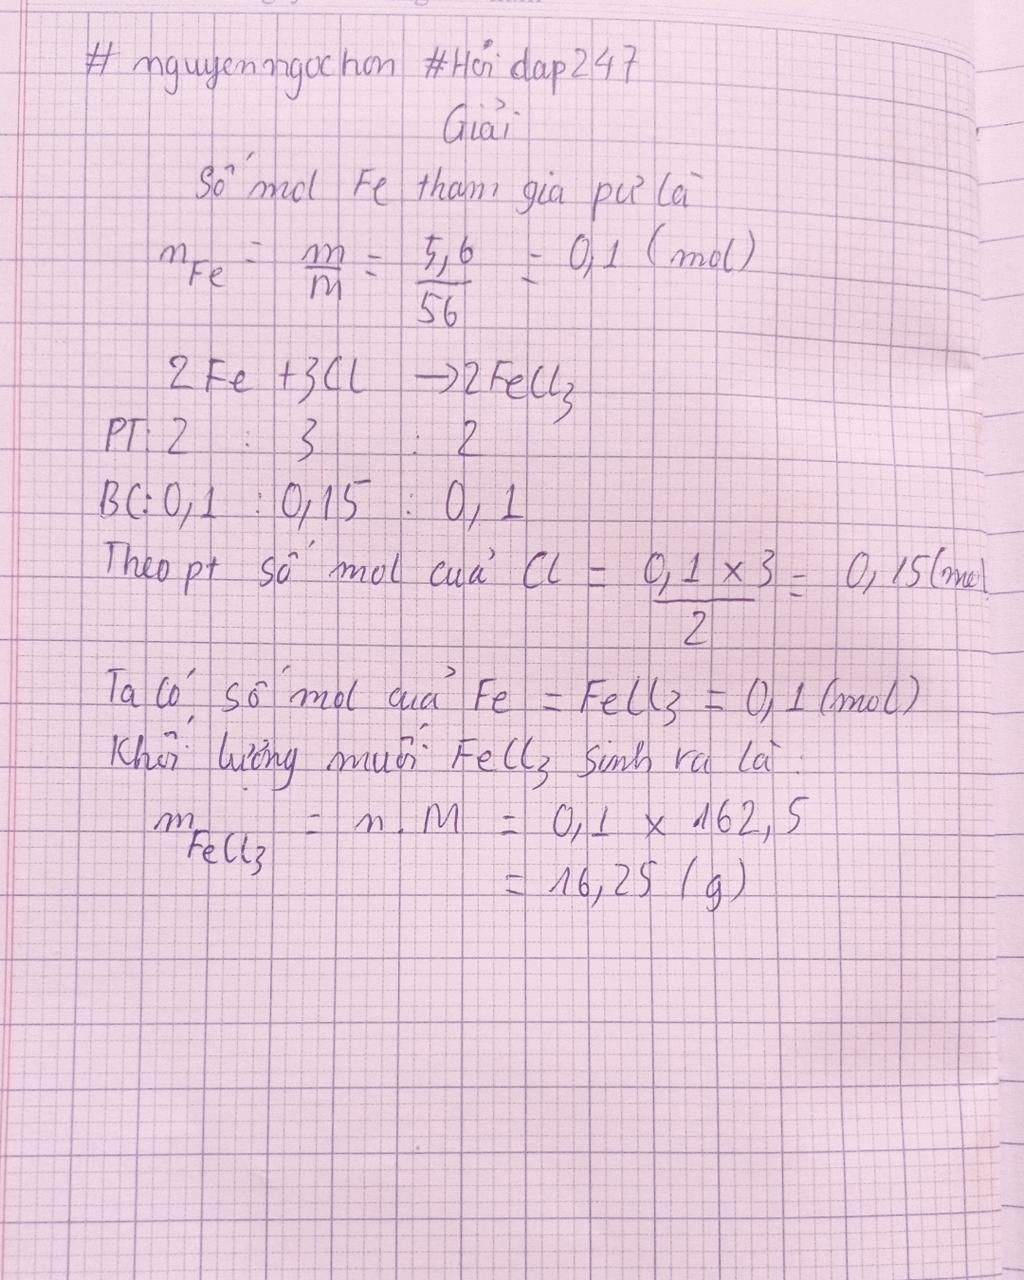 # nguyenngochon #Hỏi dap247
Giải
Số mol Fe tham gia pư là
nFe = m/M = 5,6/56 = 0,1 (mol)
2Fe +3Cl →2FeCl3
PT: 2 : 3 : 2
BC: 0,1 : 0,15 : 0,1
Theo pt số mol cuả Cl = 0,1 x 3/2 = 0,15(mol
Ta có số mol cuả Fe = FeCl3 = 0,1 (mol)
Khối lượng muối FeCl3 sinh ra là :
mFeCl3 = n.M = 0,1 x 162,5
= 16,25 (g)